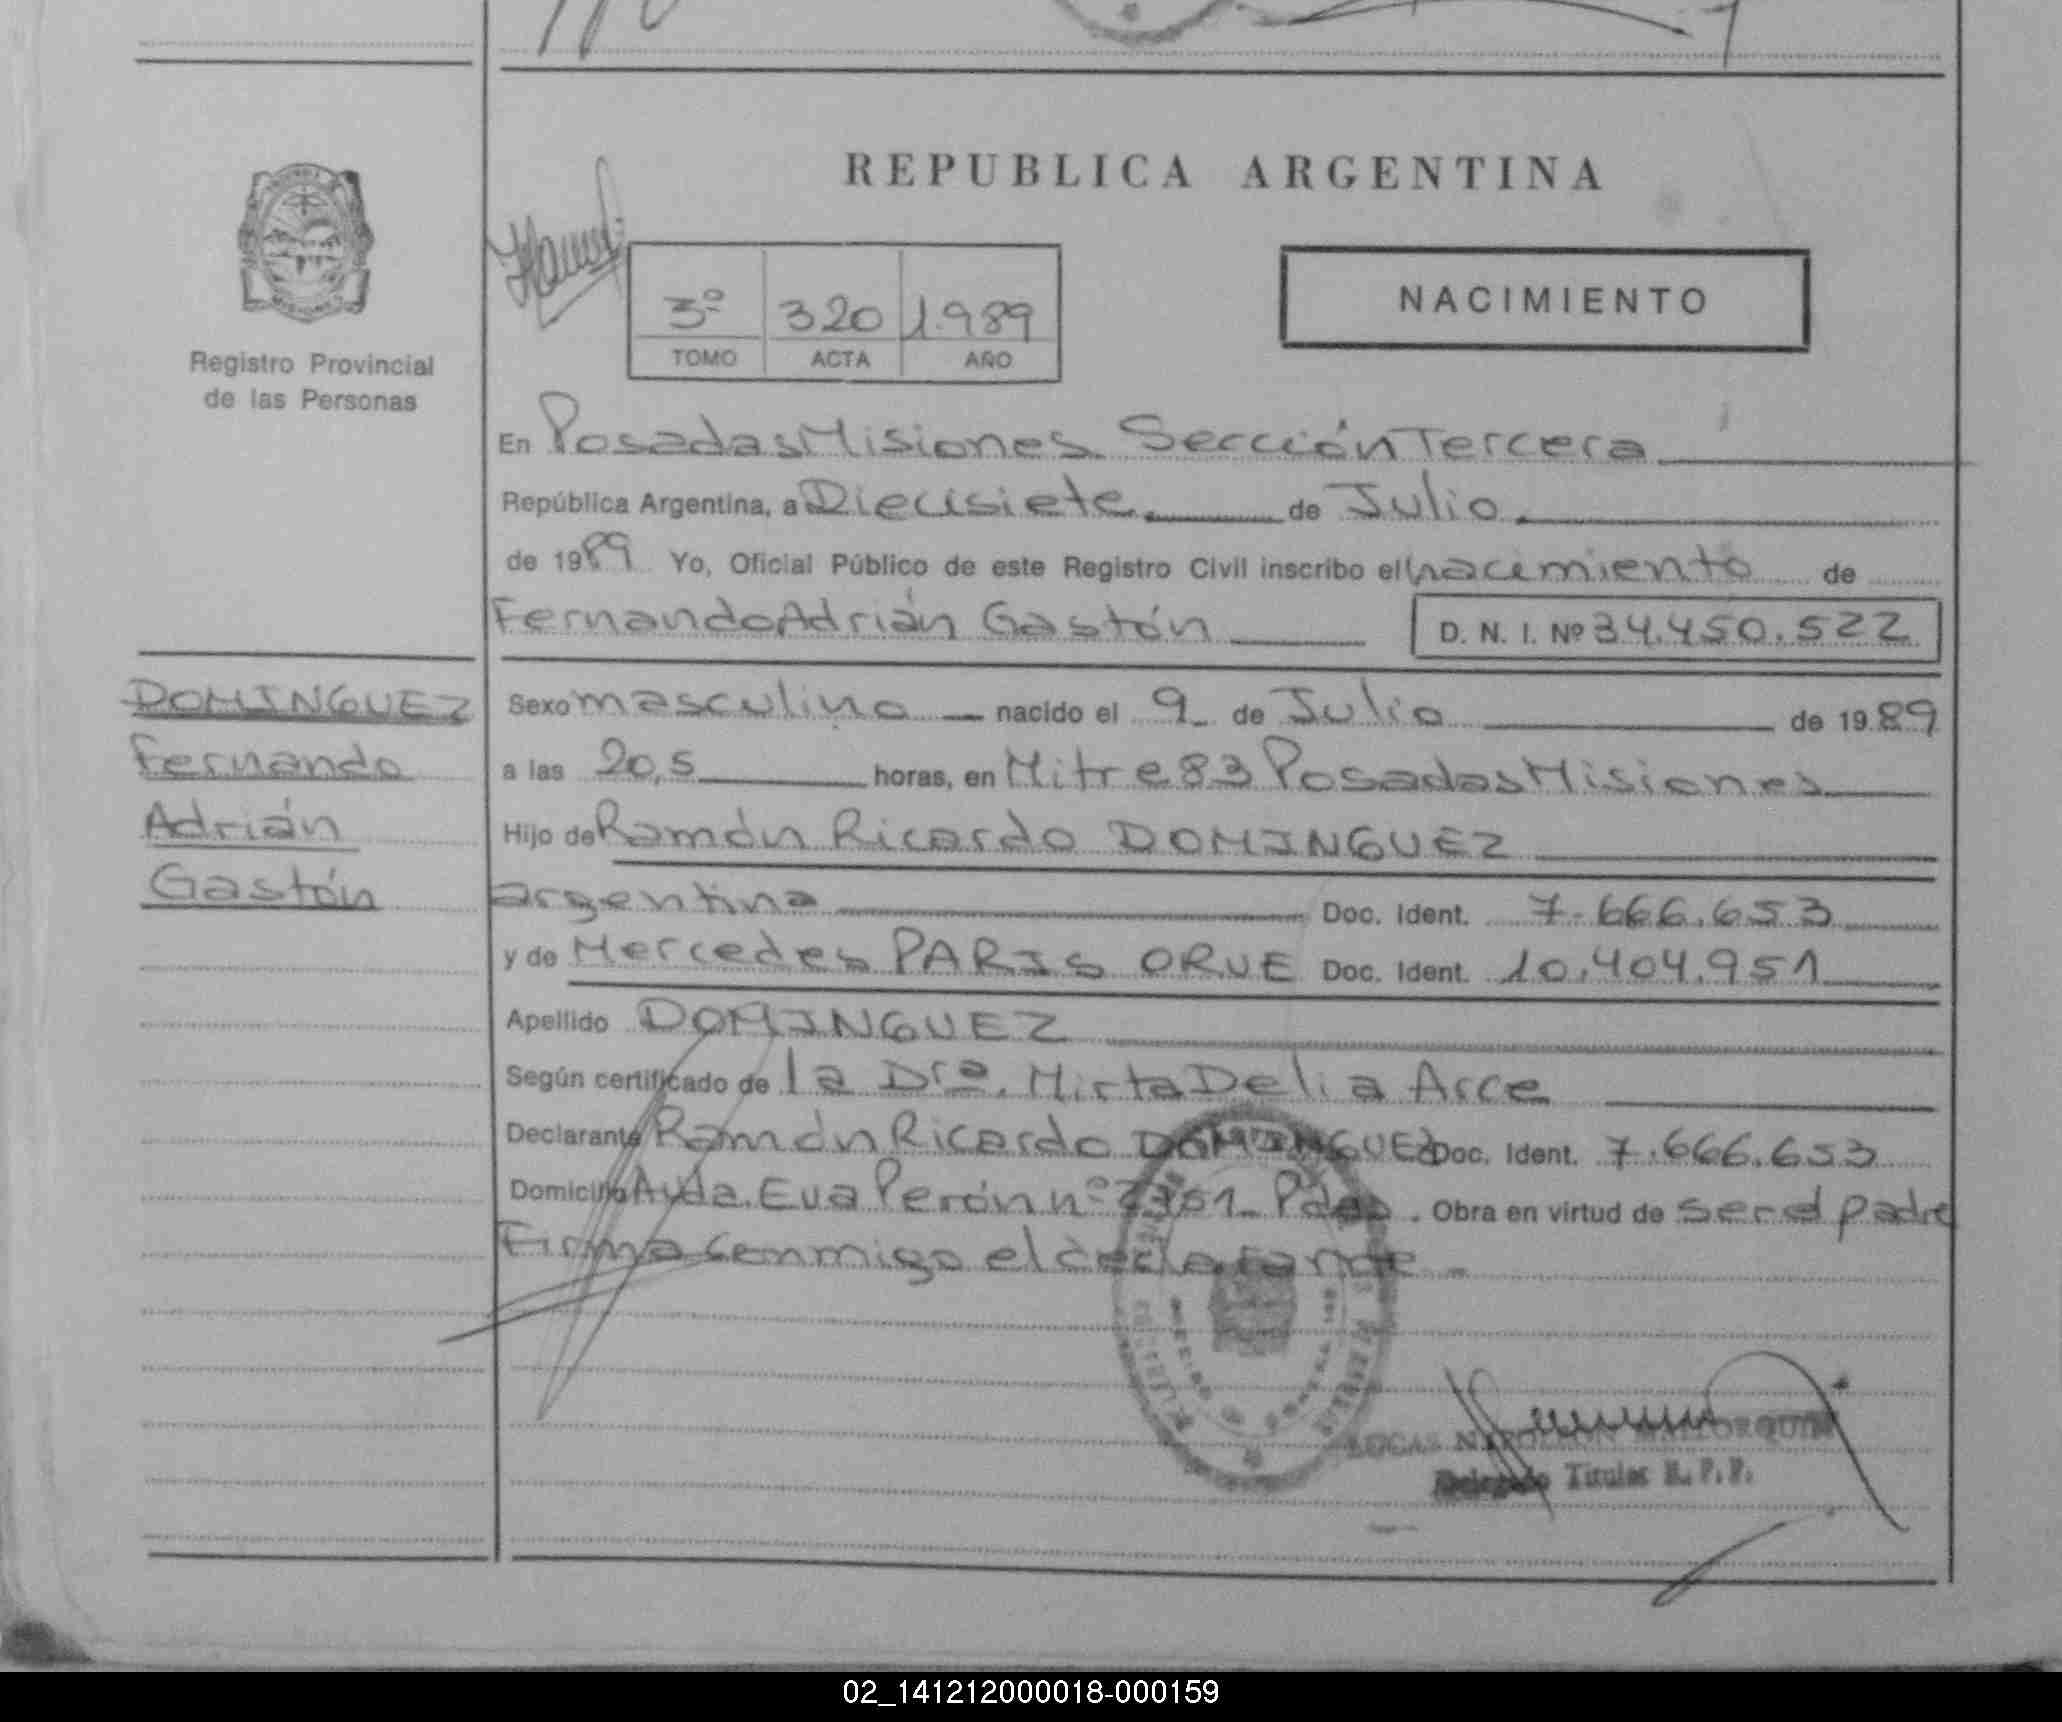 REPUBLICA ARGENTINA
NACIMIENTO
3º 320 1.989
TOMO ACTA AÑO
Registro Provincial
de las Personas
En Posadas Misiones Sección Tercera
República Argentina, a Diecisiete de Julio
de 1989 Yo, Oficial Público de este Registro Civil inscribo el nacimiento de
Fernando Adrián Gastón D. N. I. Nº 34.450.522
DOMINGUEZ
Fernando
Adrián
Gastón
Sexo masculino nacido el 9 de Julio de 1989
a las 20,5 horas, en Mitre 83 Posadas Misiones
Hijo de Ramón Ricardo DOMINGUEZ
argentina Doc. Ident. 7.666.653
y de Mercedes PARIS ORUE Doc. Ident. 10.404.951
Apellido DOMINGUEZ
Según certificado de la Drª. Mirta Delia Arce
Declarante Ramón Ricardo DOMINGUEZ Doc. Ident. 7.666.653
Domicilio Avda. Eva Perón nº Pdas. Obra en virtud de ser el padre
Firma conmigo el declarante
LUCAS NAPOLEON
Delegado Titular R. P. P.
02_141212000018-000159